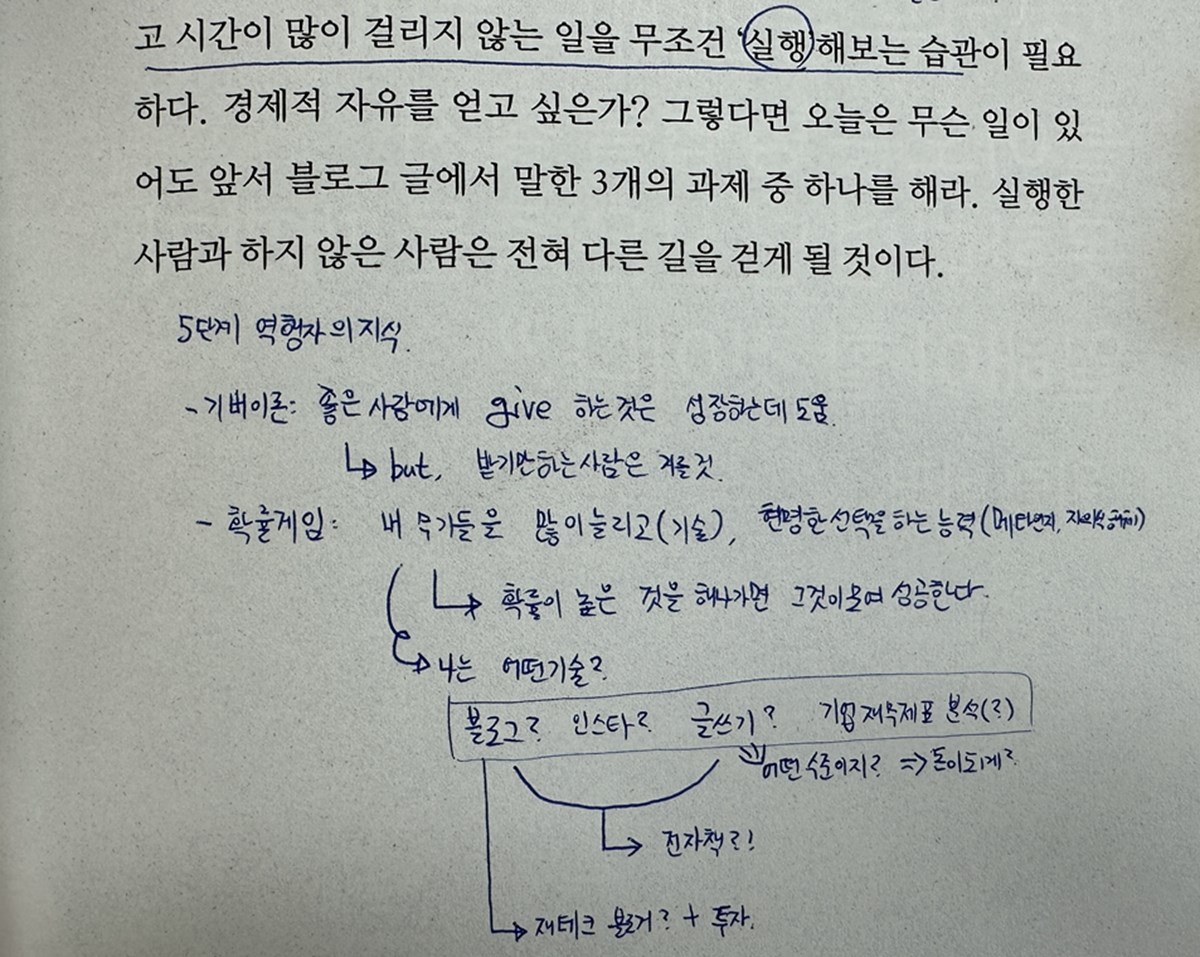 고 시간이 많이 걸리지 않는 일을 무조건 '실행'해보는 습관이 필요
하다. 경제적 자유를 얻고 싶은가? 그렇다면 오늘은 무슨 일이 있
어도 앞서 블로그 글에서 말한 3개의 과제 중 하나를 해라. 실행한
사람과 하지 않은 사람은 전혀 다른 길을 걷게 될 것이다.
5단계 역행자의 지식.
- 기버이론: 좋은 사람에게 give 하는것은 성장하는데 도움.
↳ but, 받기만하는사람은 거를것.
- 확률게임: 내 무기들을 많이늘리고(기술), 현명한 선택을 하는 능력(메타인지, 자의식해체)
↳ 확률이 높은 것을 해나가면 그것이 모여 성공한다.
→ 나는 어떤기술?
블로그? 인스타? 글쓰기? 기업 재무제표 분석(?)
어떤 수준이지? => 돈이되게?
→ 전자책?!
→ 재테크 블로거? + 투자.